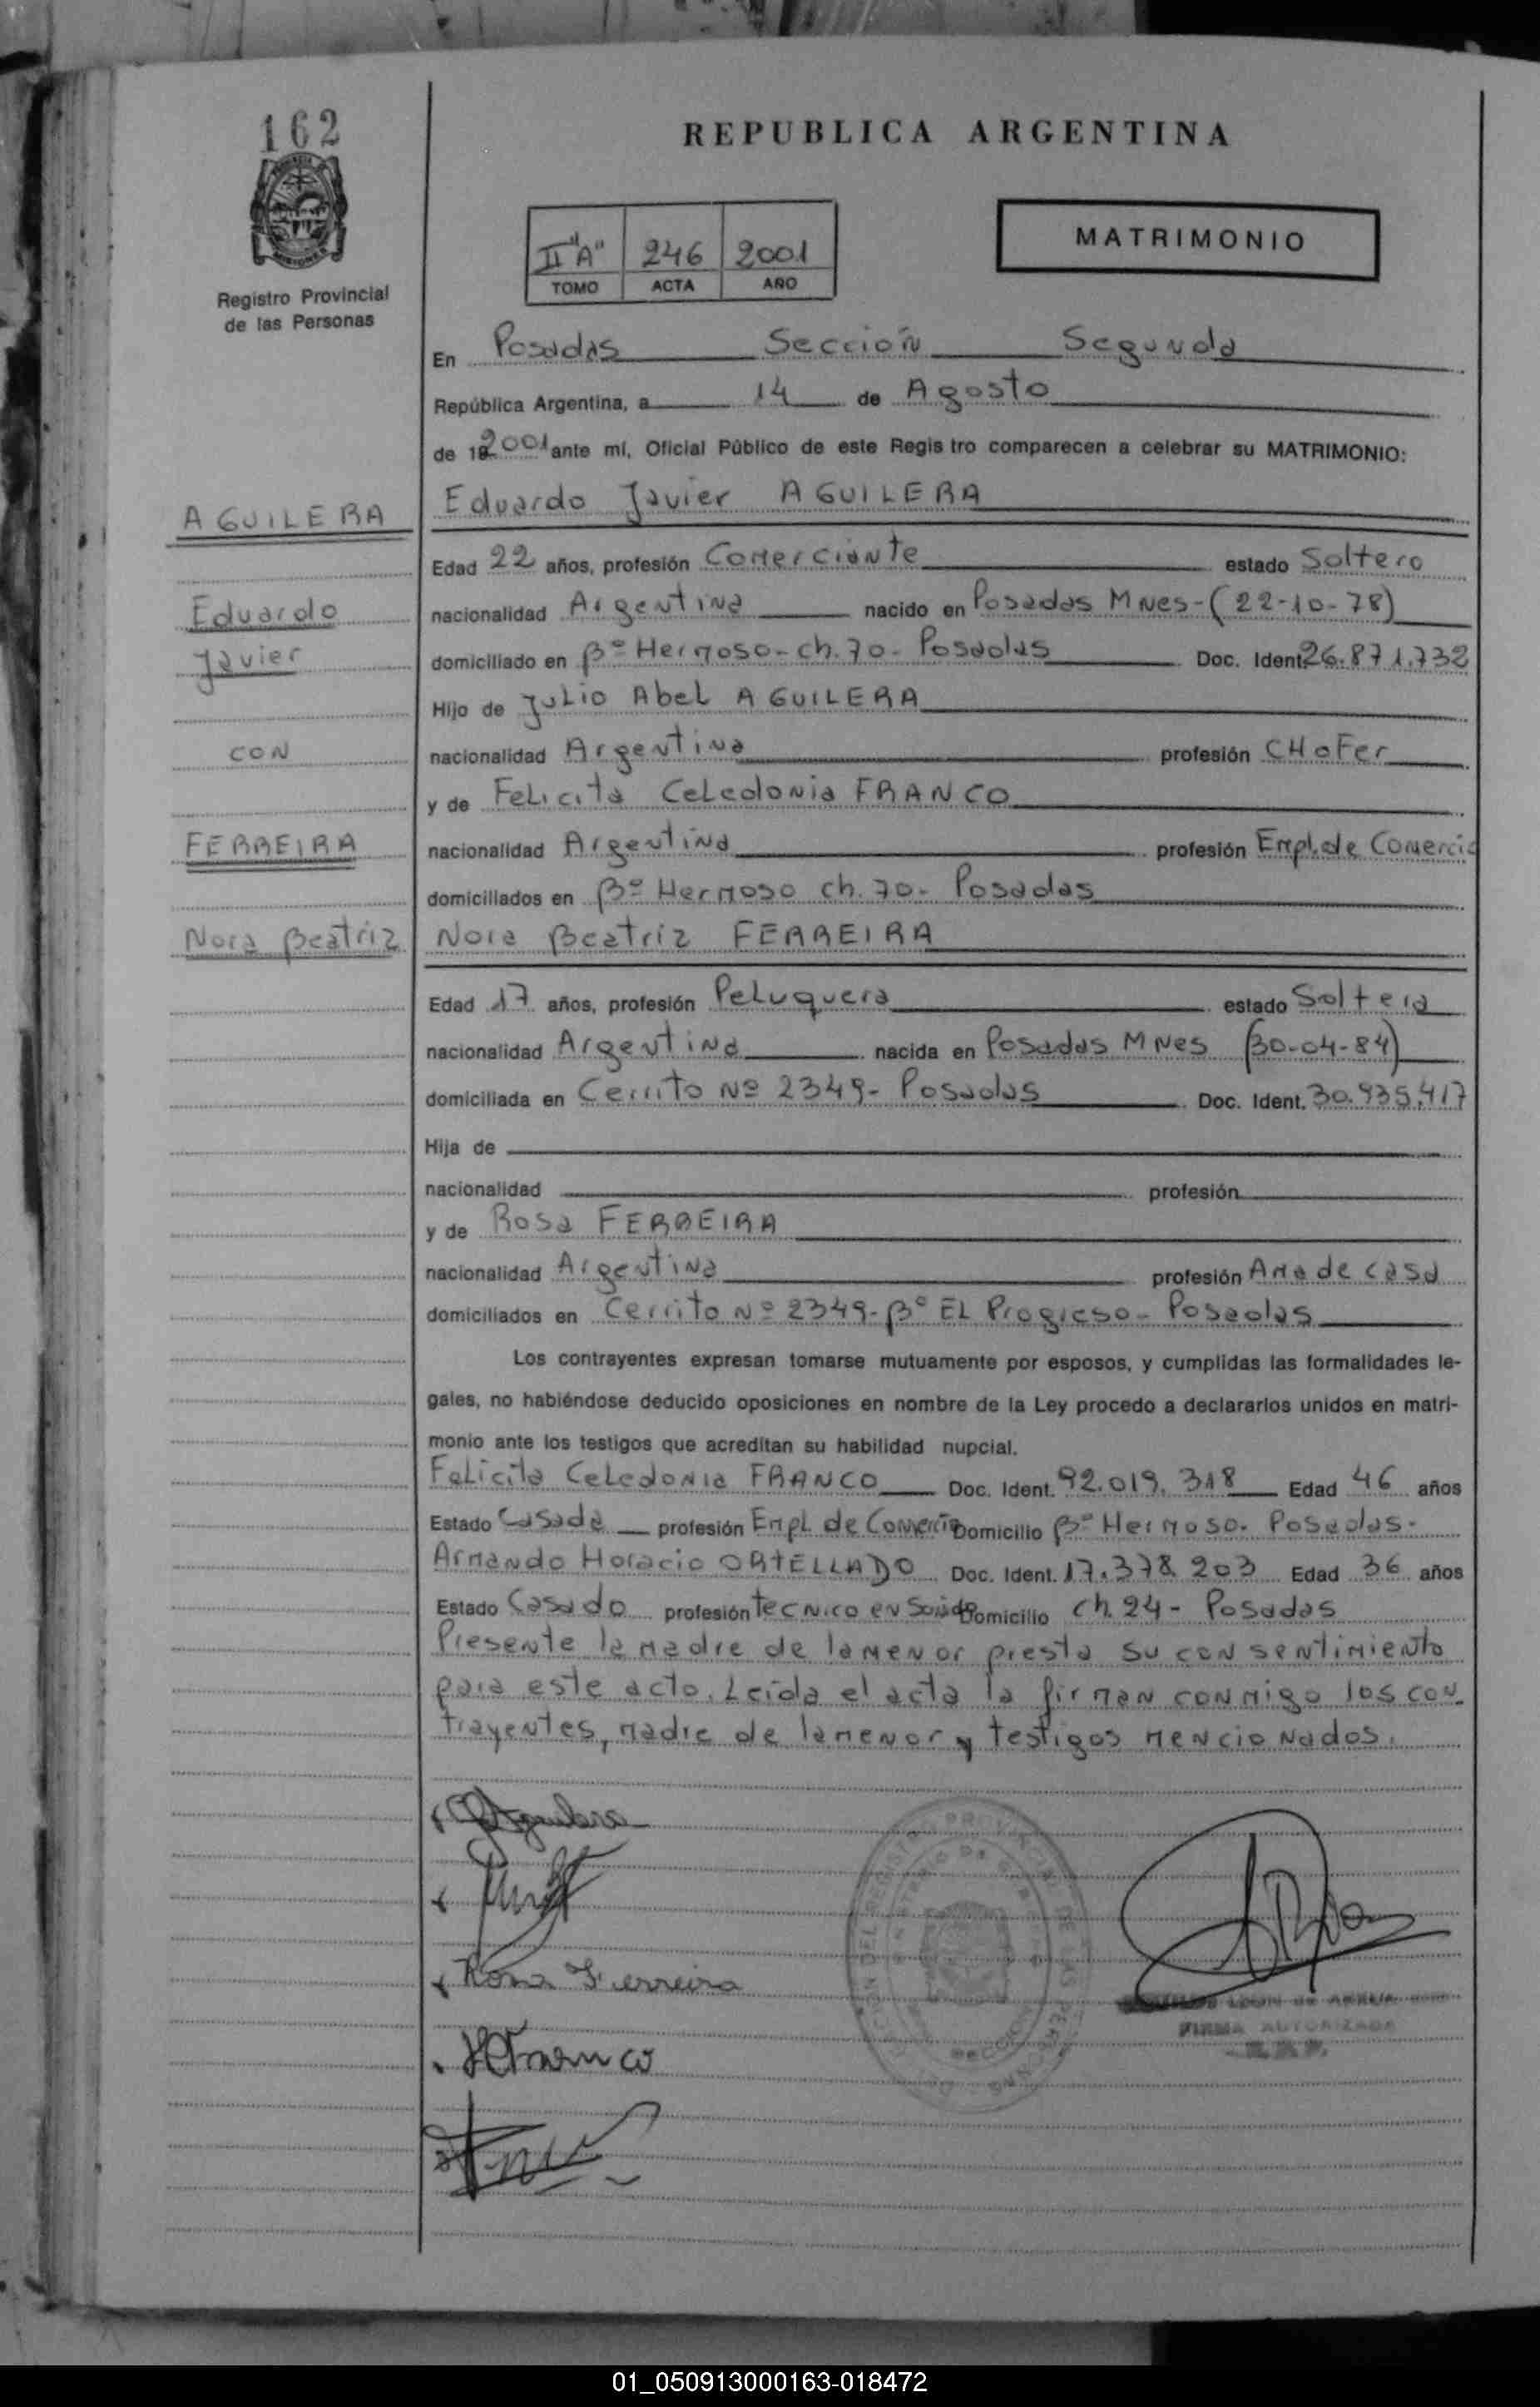 162
REPUBLICA ARGENTINA
MISIONES
Registro Provincial
de las Personas
II "A" 246 2001
TOMO ACTA AÑO
MATRIMONIO
En Posadas Sección Segunda
República Argentina, a 14 de Agosto
de 192001 ante mí, Oficial Público de este Regis tro comparecen a celebrar su MATRIMONIO:
AGUILERA
Eduardo Javier AGUILERA
Edad 22 años, profesión Comerciante estado Soltero
Eduardo
nacionalidad Argentina nacido en Posadas Mnes-(22-10-78)
Javier
domiciliado en Bº Hermoso-ch.70- Posadas Doc. Ident. 26.871.732
Hijo de Julio Abel AGUILERA
CON
nacionalidad Argentina profesión CHoFer
y de Felicita Celedonia FRANCO
FERREIRA
nacionalidad Argentina profesión Empl.de Comercio
domiciliados en Bº Hermoso ch.70- Posadas
Nora Beatriz
Nora Beatriz FERREIRA
Edad 17 años, profesión Peluquera estado Soltera
nacionalidad Argentina nacida en Posadas Mnes (30-04-84)
domiciliada en Cerrito Nº 2349- Posadas Doc. Ident. 30.935.417
Hija de
nacionalidad profesión
y de Rosa FERREIRA
nacionalidad Argentina profesión Ama de casa
domiciliados en Cerrito Nº 2349-Bº EL Progreso- Posadas
Los contrayentes expresan tomarse mutuamente por esposos, y cumplidas las formalidades le-
gales, no habiéndose deducido oposiciones en nombre de la Ley procedo a declararlos unidos en matri-
monio ante los testigos que acreditan su habilidad nupcial.
Felicita Celedonia FRANCO Doc. Ident. 92.019.318 Edad 46 años
Estado Casada profesión Empl. de Comercio Domicilio Bº Hermoso- Posadas-
Armando Horacio ORTELLADO Doc. Ident. 17.378.203 Edad 36 años
Estado Casado profesión tecnico en Sonido Domicilio ch.24- Posadas
Presente la madre de la menor presta su consentimiento
para este acto. Leída el acta la firman conmigo los con-
trayentes, madre de la menor y testigos mencionados.
Aguilera
Rosa Ferreira
Franco
FIRMA AUTORIZADA
01_050913000163-018472